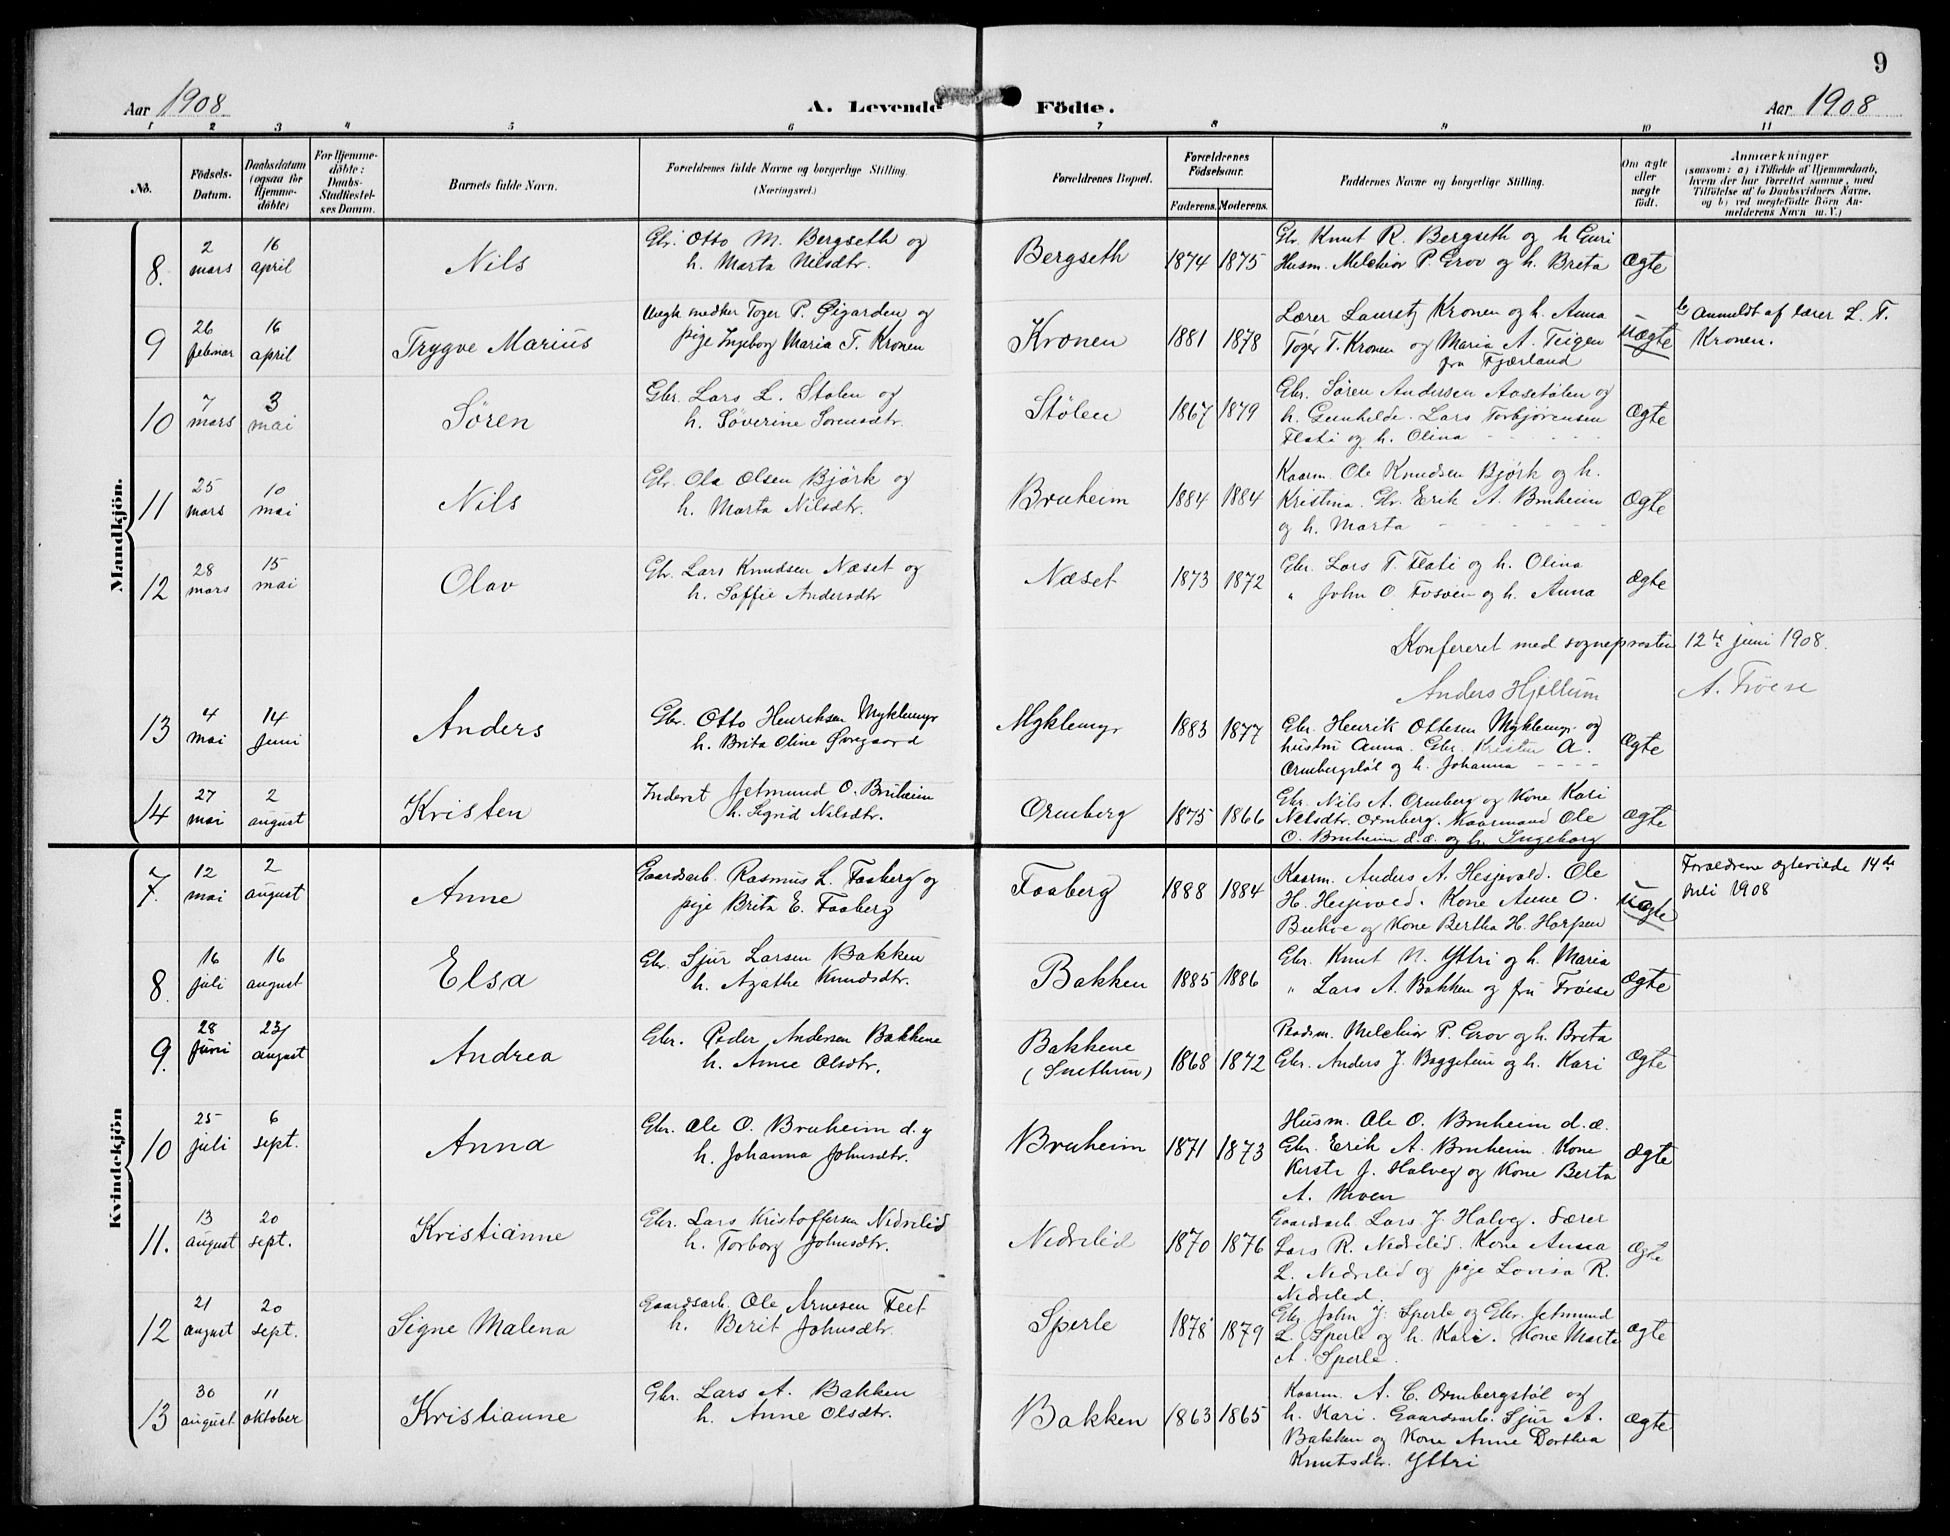 9
Aar 1908
A. Levende Födte.
Aar 1908
1 2 3 4 5 6 7 8 9 10 11
No.
Födsels-Datum.
Daabsdatum (ogsaa for Hjemme-döbte)
For Hjemme-döbte: Daabs-Stadfæstel-ses Datum.
Barnets fulde Navn.
Forældrenes fulde Navne og borgerlige Stilling. (Næringsvei.)
Forældrenes Bopæl.
Forældrenes Födselsaar.
Faderens. Moderens.
Faddernes Navne og borgerlige Stilling.
Om ægte eller uægte födt.
Anmærkninger
(saasom: a) i Tilfælde af Hjemmedaab, hvem der har forrettet samme, med Tilföielse af to Daabsvidners Navne, og b) ved uægtefödte Börn An-melderens Navn m. V.)
Mandkjön.
8. 2 mars 16 april Nils
Gbr. Otto M. Bergseth og
h. Marta Nilsdtr.
Bergseth 1874 1875
Gbr. Knut R. Bergseth og h. Guri
Husm. Melchior P. Grov og h. Brita
Ægte
9 26 februar 16 april Trygve Marius
Ungk. Toger P. Øigarden og
pige Ingeborg Maria T. Kronen
Kronen 1881 1878
Lærer Lauritz Kronen og h. Anna
Toger T. Kronen og Maria A. Teigen
fra Fjærland
Uægte
b) Anmeldt af lærer L. T.
Kronen.
10 7 mars 3 mai Søren
Gbr. Lars L. Stølen og
h. Søverine Sørensdtr.
Stølen 1867 1879
Gbr. Søren Andersen Aasetølen og
h. Gunhilde. Lars Torbjørensen
Flati og h. Olina
Ægte
11 25 mars 10 mai Nils
Gbr. Ola Olsen Bjørk og
h. Marta Nilsdtr.
Bruheim 1884 1884
Kaarm. Ole Knudsen Bjørk og h.
Kristina. Gbr. Erik A. Bruheim
og h. Marta
Ægte
12 28 mars 15 mai Olav
Gbr. Lars Knudsen Næset og
h. Soffie Andersdtr
Næset 1873 1872
Gbr. Lars T. Flati og h. Olina
" John O. Fosøen og h. Anna
Ægte
Konfereret med sognepresten 12te juni 1908.
Anders Hjellum A. Frøese
13 4 mai 14 juni Anders
Gbr. Otto Henriksen Myklemyr
h. Brita Oline Øvregaard
Myklemyr 1883 1877
Gbr. Henrik Ottesen Myklemyr og
hustru Anna. Gbr. Kristen A.
Ormbergstøl og h. Johanna
Ægte
14 27 mai 2 august Kristen
Inderst Jetmund O. Bruheim
h. Sigrid Nilsdtr.
Ormberg 1875 1866
Gbr. Nils A. Ormberg og Kone Kari
Nilsdtr. Ormberg. Kaarmand Ole
O. Bruheim d.æ. og h. Ingeborg
Ægte
Kvindekjön
7. 12 mai 2 august Anne
Gaardsarb. Rasmus L. Faaberg og
pige Brita E. Faaberg
Faaberg 1888 1884
Kaarm. Anders A. Hesjevold. Ole
H. Hesjevold. Kone Anne O.
Bukve og Kone Bertha H. Harpen
Uægte
Forældrene ægteviede 14de
juli 1908
8. 16 juli 16 august Elsa
Gbr. Sjur Larsen Bakken
h. Agathe Knudsdtr.
Bakken 1885 1886
Gbr. Knut N. Yttri og h. Maria
" Lars A. Bakken og fru Frøese
Ægte
9. 28 Juni 23 august Andrea
Gbr. Peder Andersen Bakkene
h. Anne Olsdtr.
Bakkene
(Snethun) 1868 1872
Pladsm. Melchior P. Grov og h. Brita
Gbr. Anders J. Baggethun og h. Kari
Ægte
10 25 juli 6 sept. Anna
Gbr. Ole O. Bruheim d. y
h. Johanna Johnsdtr.
Bruheim 1871 1873
Husm. Ole O. Bruheim d. æ.
Gbr. Erik A. Bruheim. Kone
Kersti J. Halveg og Kone Berta
A. Moen
Ægte
11. 13 august 20 sept. Kristianne
Gbr. Lars Kristoffersen Nedrelid
h. Torborg Johnsdtr.
Nedrelid 1870 1876
Gaardsarb. Lars J. Halveg. Lærer
Lars R. Nedrelid. Kone Anna
L. Nedrelid og pige Lovisa R.
Nedrelid.
Ægte
12 21 august 20 sept. Signe Malena
Gaardsarb. Ole Arnesen Feet
h. Berit Johnsdtr.
Sperle 1878 1879
Gbr John J. Sperle og Gbr. Jetmund
L. Sperle og h. Kari. Kone Marta
A. Sperle.
Ægte
13 30 august 11 oktober Kristianne
Gbr. Lars A. Bakken
h. Anne Olsdtr.
Bakken 1863 1865
Kaarm. A. C. Ormbergstøl og
h. Kari. Gaardsarb. Sjur A.
Bakken og Kone Anne Dorthea
Knutsdtr. Yttri
Ægte